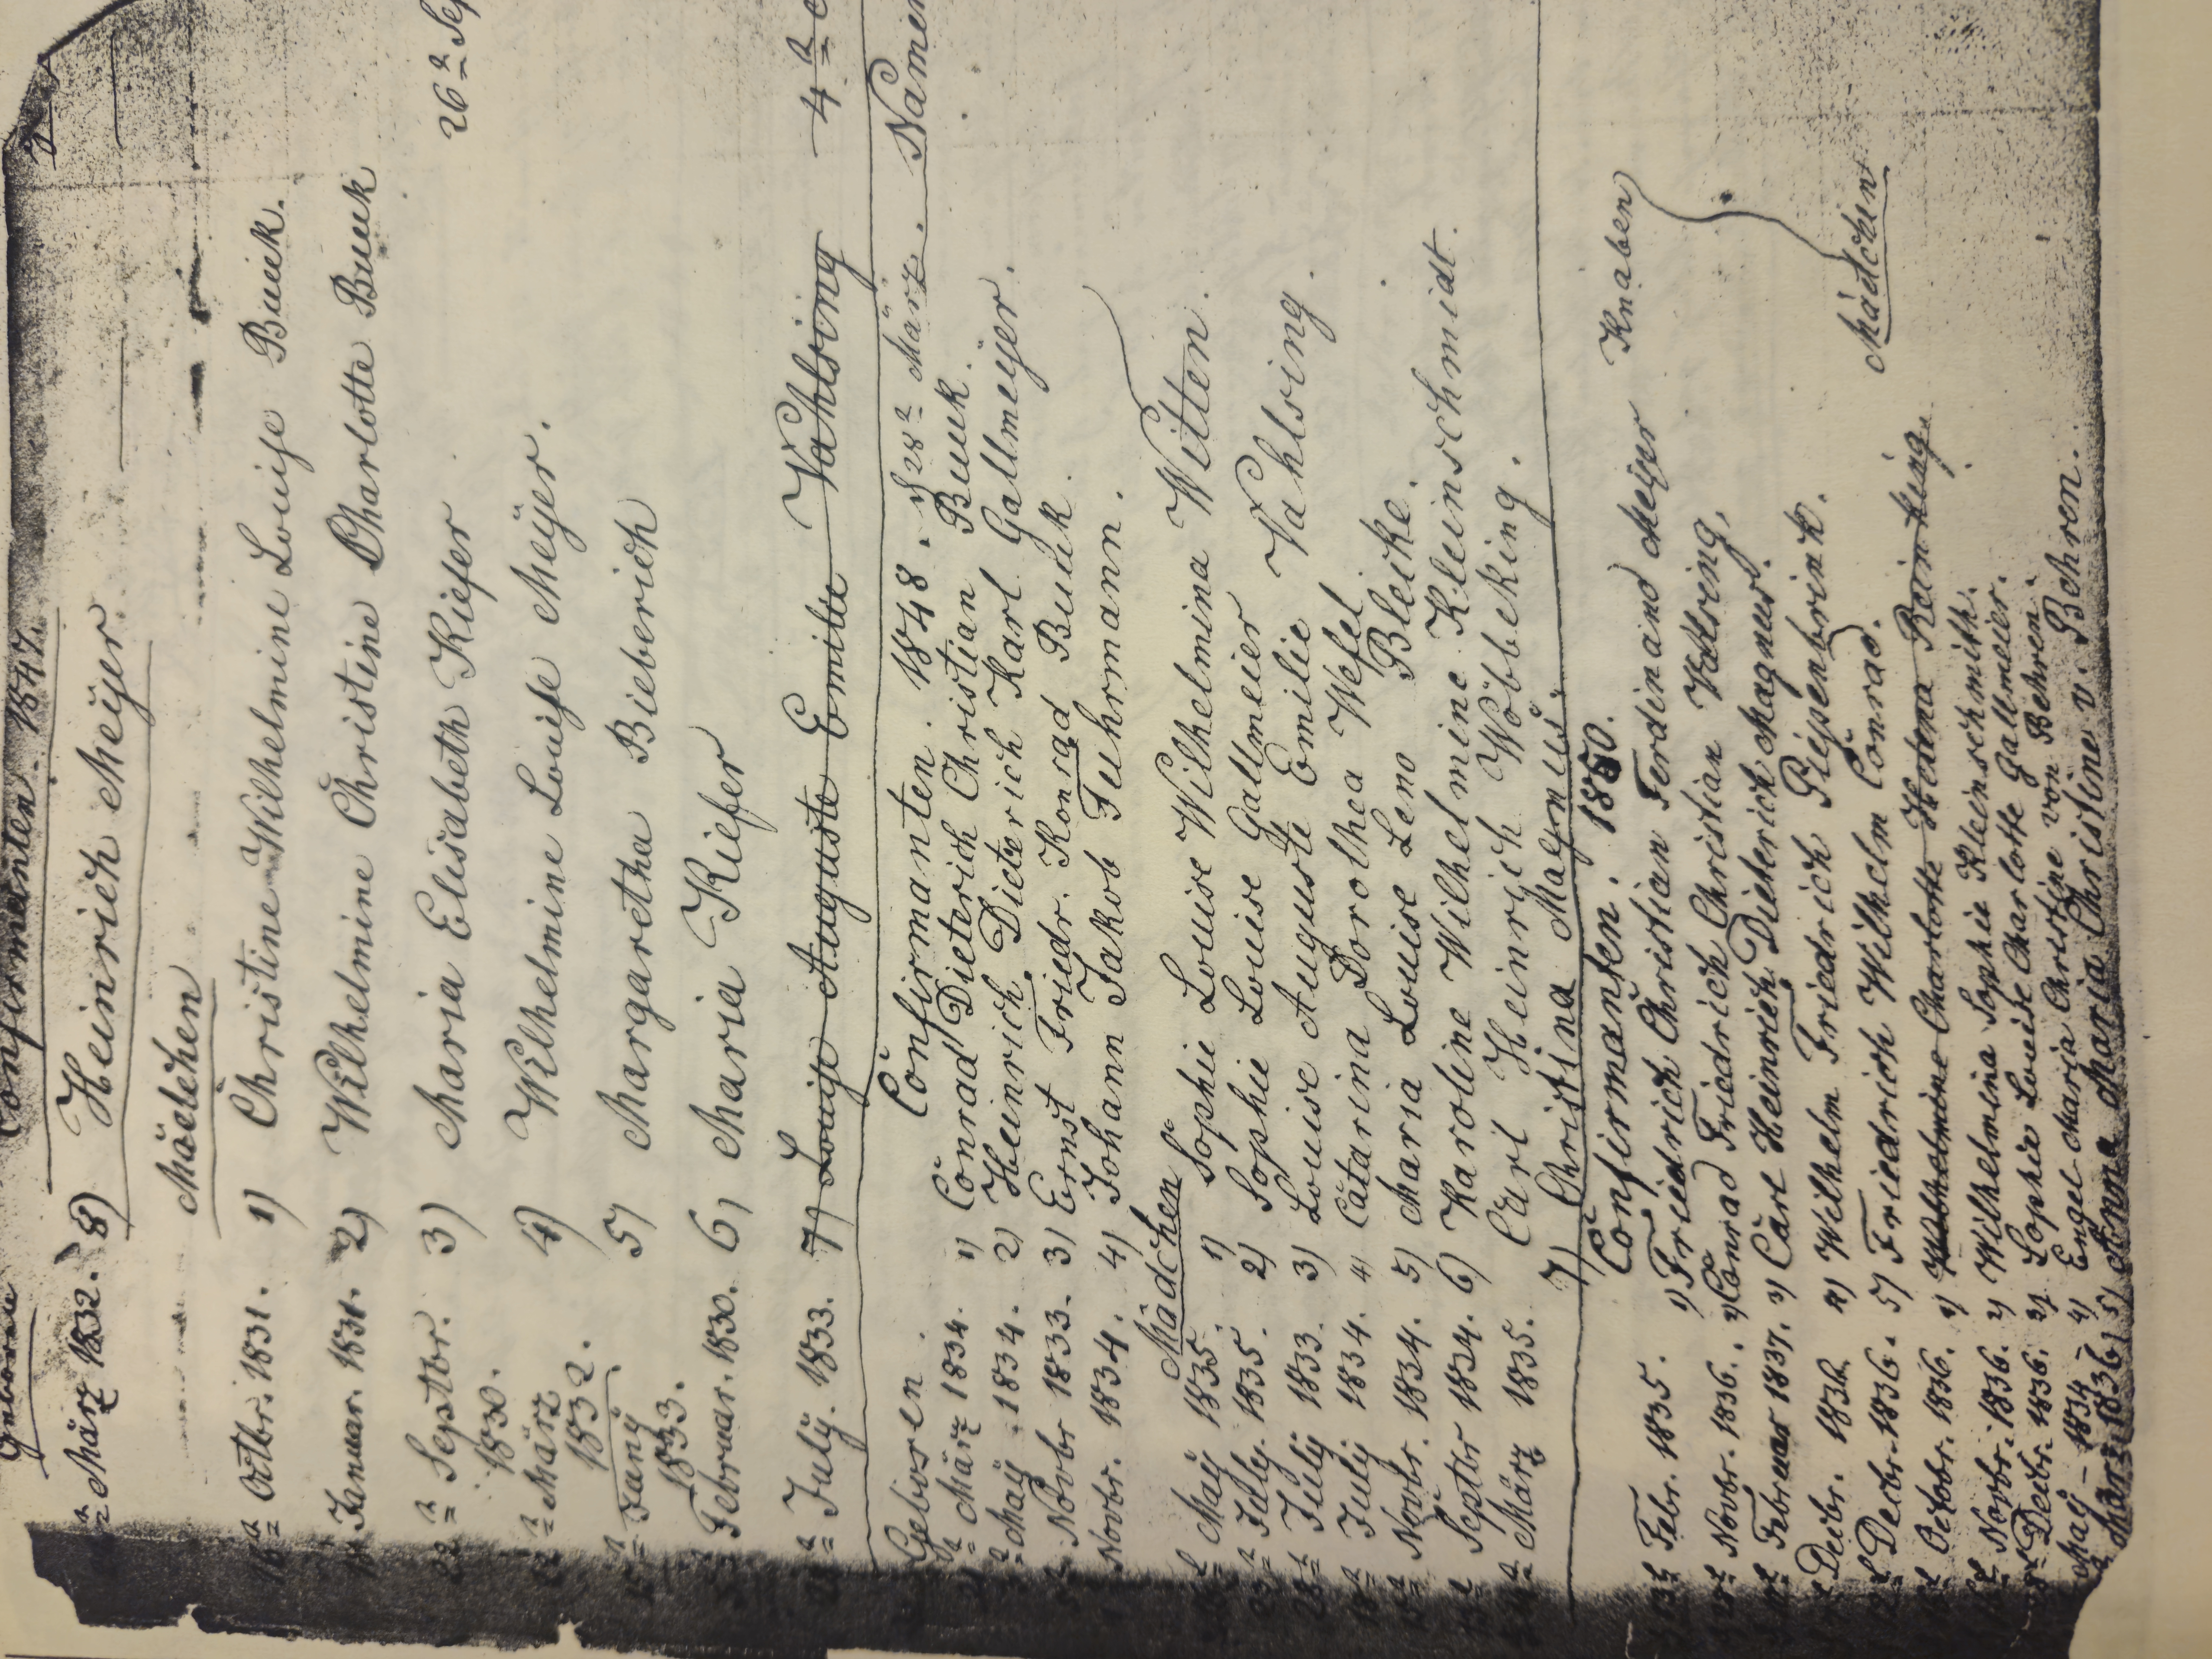 Geborene Confirmanten. 1847.
März 1832. 8) Heinrich Meÿer.
Mädchen
Octbr. 1831. 1) Christine Wilhelmine Louise Buuk.
Januar. 1831. 2) Wilhelmine Christine Charlotte Buuk
Septbr. 1830. 3) Maria Elisabeth Kiefer
26 Sep
März 1832. 4) Wilhelmine Louise Meÿer.
1833. 5) Margaretha Bieberich
Februar. 1830. 6) Maria Kiefer
Julÿ. 1833. 7) Louise Auguste Emilie Vahlsing 4
Geboren. Confirmanten. 1848. 28 März. Namen
März 1834. 1) Conrad Dieterich Christian Buuk.
Maÿ. 1834. 2) Heinrich Dieterich Karl Gallmeijer.
Novbr 1833. 3) Ernst Friedr. Konrad Buuk.
Novbr. 1834. 4) Johann Jakob Fuhrmann.
Mädchen
Maÿ 1835. 1) Sophie Louise Wilhelmina Witten.
Julÿ. 1835. 2) Sophie Louise Gallmeier
Julÿ 1833. 3) Louise Auguste Emilie Vahlsing.
Julÿ 1834. 4) Catarina Dorothea Wefel
Novbr. 1834. 5) Maria Louise Leno Bleike.
Septbr 1834. 6) Karoline Wilhelmine Kleinschmidt.
März 1835. Carl Heinrich Wöbbeking.
7) Christina Magnus.
Confirmanten. 1850.
Febr. 1835. 1) Friedrich Christian Ferdinand Meijer Knaben
Novbr. 1836. 2) Conrad Friedrich Christian Vahlsing.
Februar 1837. 3) Carl Heinrich Dieterich Magnus.
Decbr. 1836 4) Wilhelm Friedrich Piepenbrink.
Decbr. 1836. 5) Friedrich Wilhelm Conrad.
Mädchen
Octobr. 1836. 1) Wilhelmine Charlotte Helena Reinking.
Novbr. 1836. 2) Wilhelmina Sophie Kleinschmith.
Decbr. 1836. 3) Sophia Louise Charlotte Gallmeier.
Maÿ - 1834 - 4) Engel Maria Christine von Behren.
März 1836 5) Anna Maria Christine v. Behren.